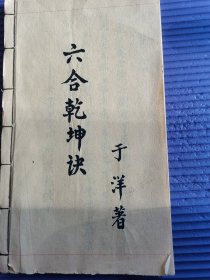 六合乾坤诀
于洋著